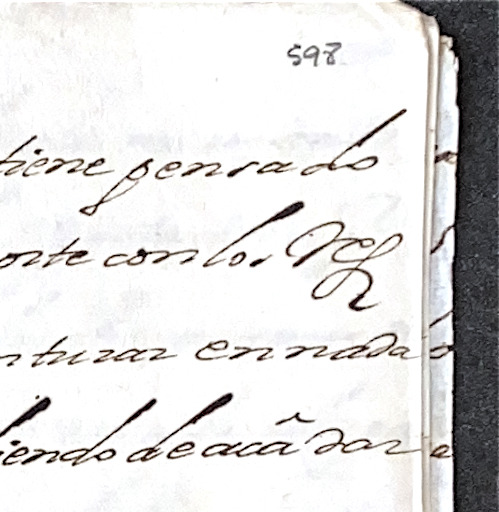 598
tiene pensado
orte con los
nturar en nada
iendo de acà dar